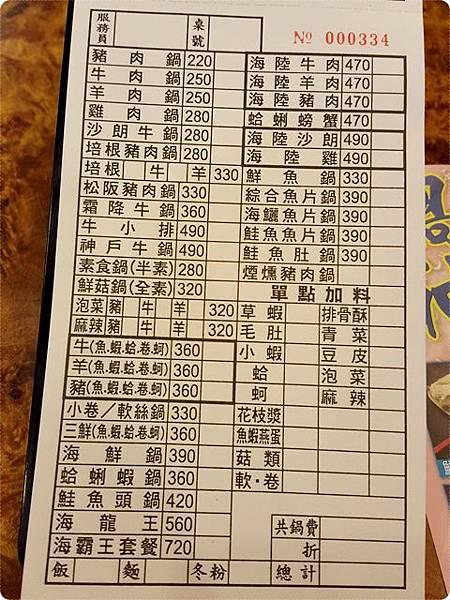 服務員 桌號 № 000334
豬肉鍋 220
牛肉鍋 250
羊肉鍋 250
雞肉鍋 280
沙朗牛鍋 280
培根豬肉鍋 280
培根 牛 羊 330
松阪豬肉鍋 330
霜降牛鍋 360
牛小排 490
神戶牛鍋 490
素食鍋(半素) 280
鮮菇鍋(全素) 320
泡菜 豬 牛 羊 320
麻辣 豬 牛 羊 320
牛(魚.蝦.蛤.卷.蚵) 360
羊(魚.蝦.蛤.卷.蚵) 360
豬(魚.蝦.蛤.卷.蚵) 360
小卷/軟絲鍋 330
三鮮(魚.蝦.蛤.卷.蚵) 360
海鮮鍋 390
蛤蜊蝦鍋 360
鮭魚頭鍋 420
海龍王 560
海霸王套餐 720
飯 麵 冬粉
海陸牛肉 470
海陸羊肉 470
海陸豬肉 470
蛤蜊螃蟹 470
海陸沙朗 490
海陸雞 490
鮮魚鍋 330
綜合魚片鍋 390
海鱺魚片鍋 390
鮭魚魚片鍋 390
鮭魚肚鍋 390
煙燻豬肉鍋
單點加料
草蝦 排骨酥
毛肚 青菜
小蝦 豆皮
蛤 泡菜
蚵 麻辣
花枝漿
魚蝦燕蛋
菇類
軟·卷
共鍋費
折
總計